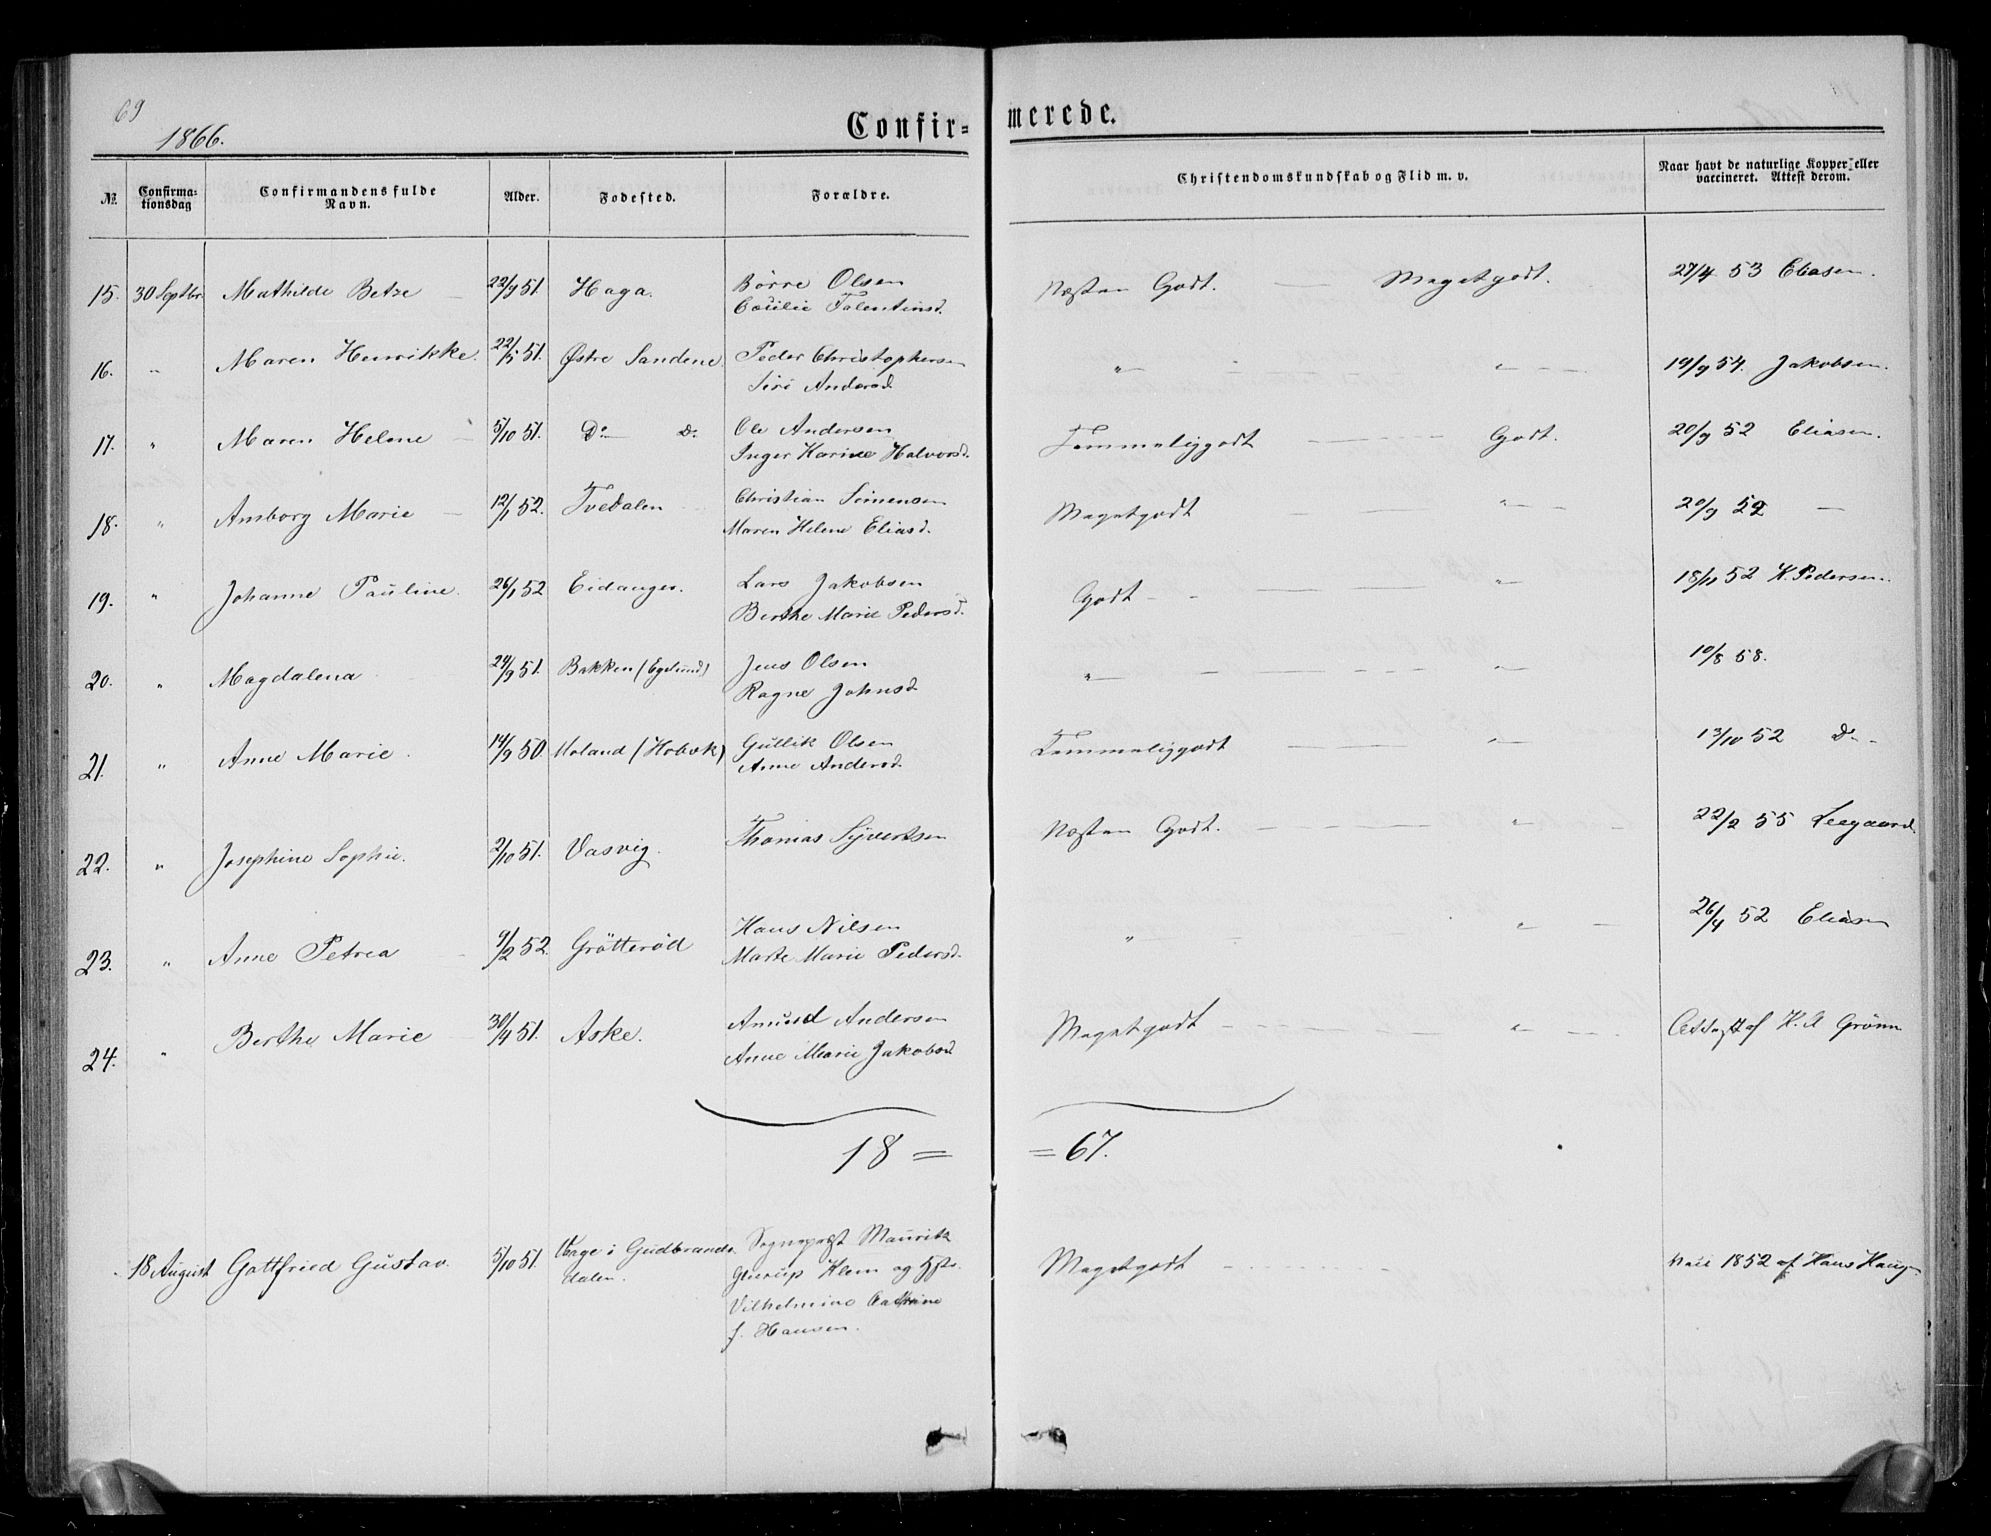 69
1866.
Confir- merede.
No. Confirma- tionsdag Confirmandens fulde Navn. Alder. Fødested. Forældre. Christendomskundskab og Flid m. v. Naar havt de naturlige Kopper eller vaccineret. Attest derom.
15. 30 Septbr. Mathilde Betze 22/9 51. Haga. Börre Olsen Næsten Godt. — Megetgodt. 27/4 53 Eliasen.
Cæcilie Falentinsd.
16. " Maren Henrikke. 22/5 51. Østre Sandene Peder Christophersen " " 19/9 54. Jakobsen.
Siri Andersd.
17. " Maren Helene 5/10 51. Do Do Ole Andersen Temmeliggodt — Godt. 20/9 52 Eliasen.
Inger Karine Halvorsd.
18. " Ansborg Marie 12/1 52. Tvedalen Christian Simensen Megetgodt — " 20/9 52 —
Maren Helene Eliasd.
19. " Johanne Pauline. 26/1 52 Eidanger. Lars Jakobsen Godt — " 18/11 52 K. Pedersen.
Berthe Marie Pedersd.
20. " Magdalena 24/9 51. Bakken (Eyelund) Jens Olsen " — " 10/8 58.
Ragne Johnsd.
21. " Anne Marie. 14/9 50. Holand (Hobæk) Gullik Olsen Temmeliggodt — " 13/10 52 Do
Anne Andersd.
22. " Josephine Sophie. 2/10 51. Vasvig. Thomas Syvertsen Næsten Godt. — " 22/2 55 Leegaard.
23. " Anne Petrea 9/2 52. Grötteröd Hans Nilsen " — " 26/4 52 Eliasen
Marte Marie Pedersd.
24. " Berthe Marie 30/9 51. Aske. Amund Andersen Megetgodt — " Attest af H. A Grönn
Anne Marie Jakobsd
18 = = 67.
18 August Gottfried Gustav. 5/10 51. Vaage i Gudbrands- Sognepræst Mauritz Megetgodt — 1852 af Hans Haugen
dalen. Glerup Klem og Hstr.
Vilhelmine Cathrine
f. Hansen.